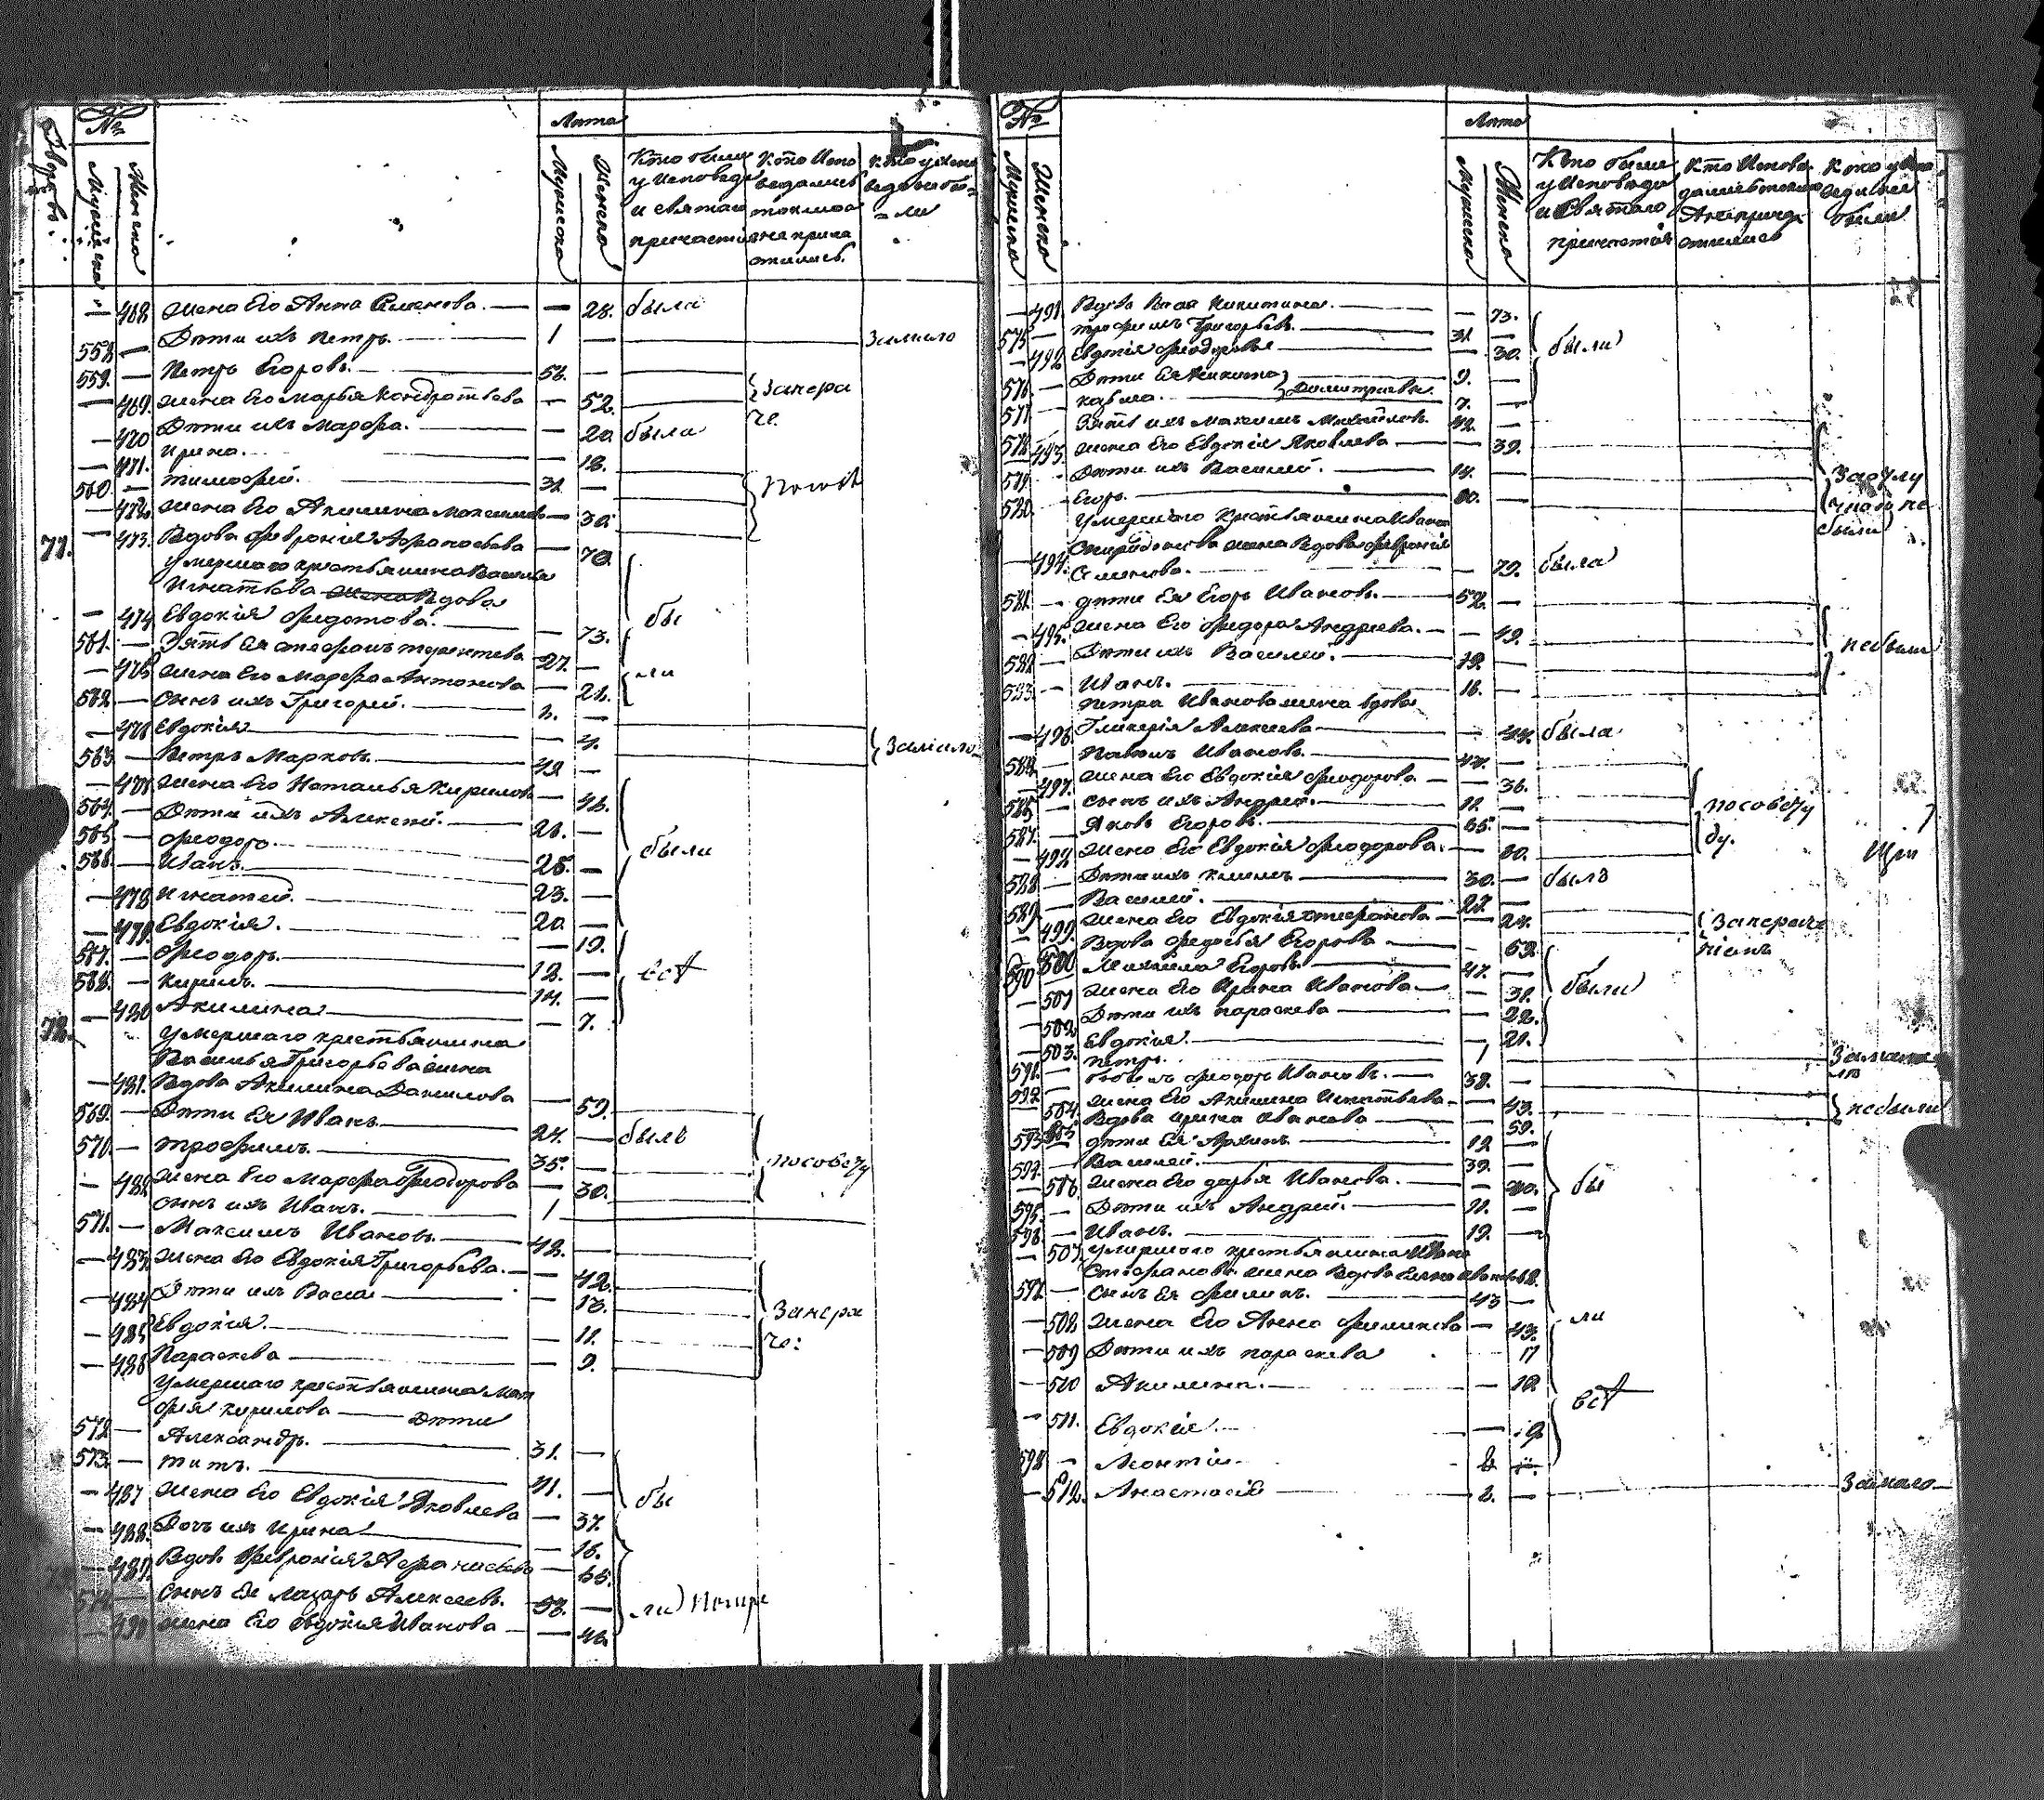 № Лета
Дворовъ.
Мужеска Женска Мужеска Женска
Кто были у Исповеди и святаго причастия
Кто Испо ведались токмо а не прича стились.
Кто у Испо веди не бы = ли
— 468 жена Его Анна Семенова. — — 28. была
558 — Дети ихъ Петръ. — 1 — Замало
559. — Петръ Егоровъ. — 58. —
— 469. жена Его Марья Кондратьева — 52. Запера
— 470 Дети ихъ Марфа. — — 20 была че
— 471. Ирина. — 18.
560. — Тимофей. 31. —
— 472. жена Его Акилина Максимова — 30.
— 473. Вдова Феврония Афанасьева — 70.
77. умершаго крестьянина Василья
Игнатьева жена Вдова
— 474 Евдокия Федотова. — — 73. бы
561. — Зять Ея Стефанъ Терентьевъ 27. —
— 475 жена Его Марфа Антонова — 28. ли
562 — Сынъ ихъ Григорей. — 2. —
— 476 Евдокия — 4. Замало
563. — Петръ Марковъ. 49 —
— 477 жена Его Наталья Кирилова — 46.
564. — Дети ихъ Алексей. — 28. —
565 — Феодоръ. 25. — были
566. — Иванъ. 23. —
— 478 Игнатей. 20 —
— 479. Евдокия. — 19.
567. — Феодоръ. 18. — все
568. — Кирилъ. 14. —
— 480 Акилина — 7.
78. умершаго крестьянина
Василья Григорьева жена
— 481. Вдова Акилина Данилова — 59.
569. — Дети Ея Иванъ. 27. — былъ
570. — Трофимъ. 35. — по совету
— 482 жена Его Марфа Феодорова — 30.
Сынъ ихъ Иванъ. — 1
571. — Максимъ Ивановъ. 42. —
— 483. жена Его Евдокия Григорьева. — — 42.
— 484 Дети ихъ Васса — — 13. Запера
— 485 Евдокия. — 11. че:
— 486 Параскева — — 9.
умершаго крестьянина
Кирилова — Дети
572 — Александръ. — 31. —
573. — Титъ. 41. —
— 487 жена Его Евдокия Яковлева — 37. бы
— 488. Дочь ихъ Ирина — 16.
— 489. Вдова Феврония Афанасьева — 65.
574 — Сынъ Ея Лазарь Алексеевъ. 58. — ли
— 490 жена Его Евдокия Иванова — — 46.
№ Лета
Мужеска Женска Мужеска Женска
Кто были у Исповеди и Святаго причастия
Кто Испове дались токмо А не прича стились
Кто у Испо веди не были
— 491 Вдова Васса Никитина. — — 73.
575 — Трофимъ Григорьевъ. — 31 —
— 492 Евдокия Феодорова — — 30. были
576. — Дети Ея Никита 9. —
577 Козьма. — Димитриевы. 7. —
578 Зять ихъ Максимъ Михайловъ. 42. —
— 493. жена Его Евдокия Яковлева — — 39.
579. — Дети ихъ Василей. — 14. —
580. — Егоръ. — 10. — были
умершаго крестьянина Ивана
Спиридонова жена Вдова Феврония
— 494 Семенова. — — 79. была
581 — дети Ея Егоръ Ивановъ. — 52. —
— 495. жена Его Федора Андреева. — — 49.
582 — Дети ихъ Василей. — 19. — не были
583 — Иванъ. — 16. —
Петра Иванова жена вдова
— 496. Гликерия Алексеева — 44. была
584 — Павелъ Ивановъ. — 44. —
— 497. жена Его Евдокия Феодорова — — 36.
585 — Сынъ ихъ Андрей. — 11. — по совету
587. — Яковъ Егоровъ. — 65. — ду.
— 498 жена Его Евдокия Феодорова. — 60.
588 — Дети ихъ Климъ — 30. — былъ
589. — Василей. — 27. —
— 499. жена Его Евдокия Стефанова — 24.
— 500 Вдова Федосья Егорова — 58.
590 — Михайла Егоровъ. — 47. —
— 501 жена Его Ирина Иванова — — 38. были
— 502 Дети ихъ Параскева — 22.
— 503. Евдокия. — 21.
591. — Петръ. 1
592. — Феодоръ Ивановъ. — 38. —
— 504. жена Его Акилина Игнатьева. — 43. не были
— 505 Вдова Ирина Иванова — 59.
593 — дети Ея Архипъ. — 19 —
594. — Василей. — 39. —
— 506. жена Его Дарья Иванова. — — 40. бы
595. — Дети ихъ Андрей. — 21. —
596. — Иванъ. — 19. —
— 507. умершаго крестьянина Ивана
Стефанова жена Вдова
597. — Сынъ Ея Филипъ. — 43 —
— 508 жена Его Анна Филипова — 43. ли
— 509 Дети ихъ Параскева — 17
— 510 Акилина. — 12
— 511. Евдокия. — 9. все
598 — Леонтий. 2
— 512. Анастасия 2. — Замало